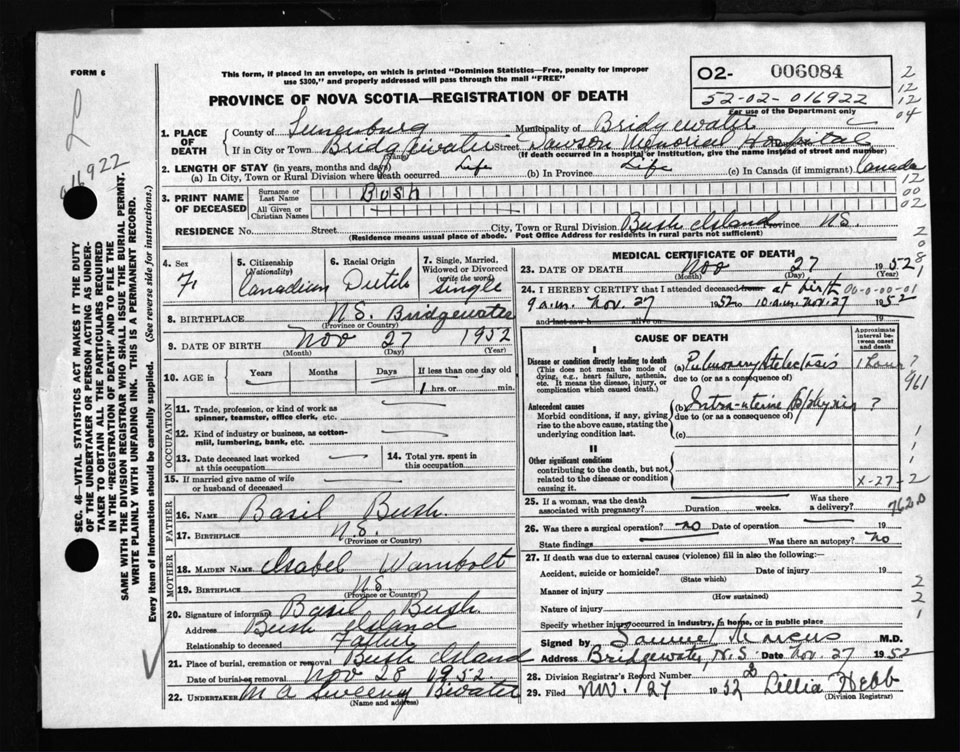 FORM 6
This form, if placed in an envelope, on which is printed "Dominion Statistics—Free, penalty for improper
use $300," and properly addressed will pass through the mail "FREE"
O2- 006084
52-02-016922
For use of the Department only
PROVINCE OF NOVA SCOTIA—REGISTRATION OF DEATH
016922
2
12
12
04
1. PLACE OF DEATH
County of Lunenburg Municipality of Bridgewater
If in City or Town Bridgewater Street Dawson Memorial Hospital
(Name) (If death occurred in a hospital or institution, give the name instead of street and number)
2. LENGTH OF STAY (in years, months and days)
(a) In City, Town or Rural Division where death occurred Life (b) In Province Life (c) In Canada (if immigrant) Canada
12
00
02
3. PRINT NAME OF DECEASED
Surname or Last Name Bush
All Given or Christian Names
RESIDENCE No. Street City, Town or Rural Division Bush Island Province N.S.
(Residence means usual place of abode. Post Office Address for residents in rural parts not sufficient)
4. Sex F
5. Citizenship (Nationality) Canadian
6. Racial Origin Dutch
7. Single, Married, Widowed or Divorced (write the word) Single
8. BIRTHPLACE N.S. Bridgewater
(Province or Country)
9. DATE OF BIRTH Nov 27 1952
(Month) (Day) (Year)
10. AGE in Years Months Days If less than one day old
1 hrs. or min.
OCCUPATION
11. Trade, profession, or kind of work as spinner, teamster, office clerk, etc.
12. Kind of industry or business, as cotton-mill, lumbering, bank, etc.
13. Date deceased last worked at this occupation
14. Total yrs. spent in this occupation
15. If married give name of wife or husband of deceased
FATHER
16. NAME Basil Bush
17. BIRTHPLACE N.S.
MOTHER
18. MAIDEN NAME Isabel Wambolt
19. BIRTHPLACE N.S.
(Province or Country)
20. Signature of informant Basil Bush
Address Bush Island
Relationship to deceased Father
21. Place of burial, cremation or removal Bush Island
Date of burial or removal Nov 28 1952
22. UNDERTAKER M A Sweeny Bwater
(Name and address)
MEDICAL CERTIFICATE OF DEATH
23. DATE OF DEATH Nov 27 1952
(Month) (Day) (Year)
24. I HEREBY CERTIFY that I attended deceased from at birth 00-0-00-01
9 a.m. Nov. 27 1952 to 10 a.m. Nov. 27 1952
and last saw h alive on 19
CAUSE OF DEATH
Approximate interval between onset and death
I
Disease or condition directly leading to death
(This does not mean the mode of dying, e.g., heart failure, asthenia, etc. It means the disease, injury, or complication which caused death.)
(a) Pulmonary Atelectasis 1 hour
due to (or as a consequence of)
961
Antecedent causes
Morbid conditions, if any, giving rise to the above cause, stating the underlying condition last.
(b) Intra-uterine Asphyxia ?
due to (or as a consequence of)
(c)
II
Other significant conditions
contributing to the death, but not related to the disease or condition causing it.
X-27-2
762.0
25. If a woman, was the death associated with pregnancy? Duration weeks. Was there a delivery?
26. Was there a surgical operation? no Date of operation 19
State findings Was there an autopsy? no
27. If death was due to external causes (violence) fill in also the following:—
Accident, suicide or homicide? Date of injury 19
(State which)
Manner of injury
(How sustained)
Nature of injury
Specify whether injury occurred in industry, in home, or in public place
2
2
1
Signed by Samuel Marcus M.D.
Address Bridgewater, N.S. Date Nov. 27 1952
28. Division Registrar's Record Number
29. Filed Nov. 27 1952 Lillia Hebb
(Division Registrar)
SEC. 46—VITAL STATISTICS ACT MAKES IT THE DUTY
OF THE UNDERTAKER OR PERSON ACTING AS UNDER-
TAKER TO OBTAIN ALL THE PARTICULARS REQUIRED
IN THE "REGISTRATION OF DEATH" AND TO FILE THE
SAME WITH THE DIVISION REGISTRAR WHO SHALL ISSUE THE BURIAL PERMIT.
WRITE PLAINLY WITH UNFADING INK. THIS IS A PERMANENT RECORD.
Every item of Information should be carefully supplied. (See reverse side for instructions.)